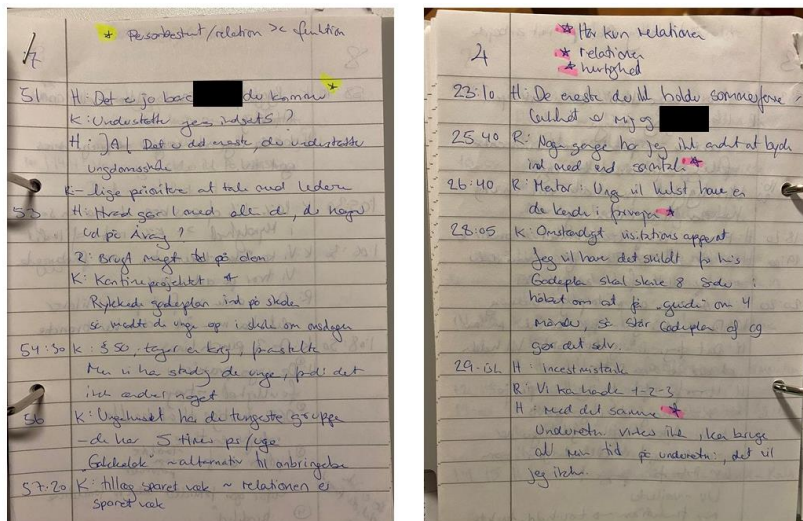 7
* Personbestemt/relation >< funktion
51 H: Det er jo bare du kommer *
K: Understøtter jeres indsats?
H: JA! Det er det eneste, de understøtter
K: – lige prioritere at tale med lederen
53 H: Hvad gør I med alle de, der
ud på
R: Brugt meget tid på dem
K: *
Rykkede gadeplan ind på skolen
så mødte de unge op i skole om onsdagen
54:30 K: § 50, tager en krig,
Men vi har stadig de unge, fordi det
ikk ændrer noget
56 K: Ungehuset har de tungeste gruppe
– de har 5 timer pr/uge
~ alternativ til anbringelse
57:20 K: tillæg sparet væk ~ relationen er
sparet væk
4
* Har kun relationen
* relationen
* hurtighed
23:10 H: De eneste du vil holde sommerferie,
er mig og
25:40 R: Nogle gange har jeg ikk andet at byde
ind med end samtale *
26:40 R: Mentor: Unge vil helst have en
de kender i forvejen *
28:05 K: Omstændigt visitations apparat
Jeg vil have det skildt for his
Gadeplan skal skrive 8 sider i
håbet om at få "guide" om 4
måneder, så står Gadeplan af og
gør det selv.
29- H: incestmistanke
R: Vi kan handle 1-2-3
H: med det samme *
Underretn virker ikk, kan bruge
al min tid på underretn, det vil
jeg ikk